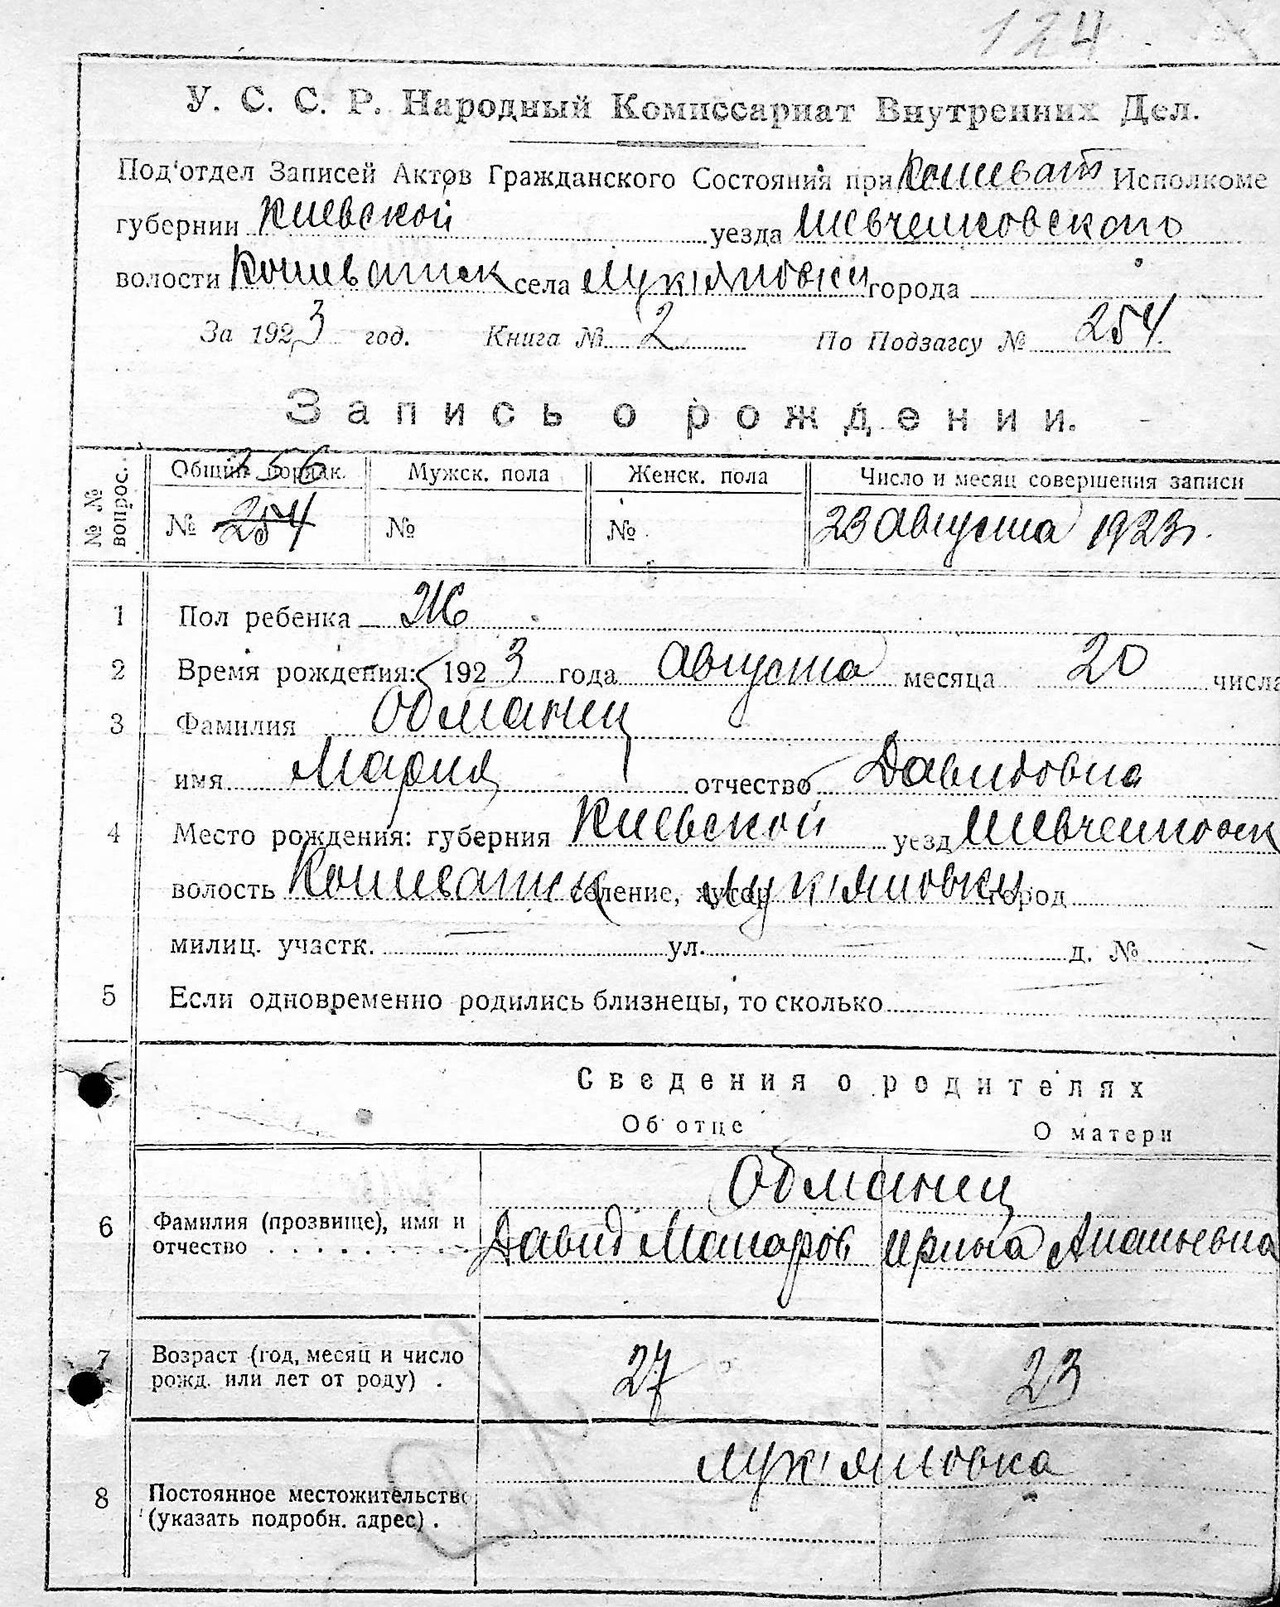 124
У. С. С. Р. Народный Комиссариат Внутренних Дел.
Под'отдел Записей Актов Гражданского Состояния при Кошеват Исполкоме
губернии Киевской уезда Шевченковского
волости Кошеватск села Лук'яновки города
За 1923 год. Книга № 2 По Подзагсу № 254.
Запись о рождении.
№ № вопрос. Общий порядк. 256 Мужск. пола Женск. пола Число и месяц совершения записи
№ 254 № № 23 Августа 1923 г.
1 Пол ребенка Ж
2 Время рождения: 1923 года Августа месяца 20 числа
3 Фамилия Обманец
имя Мария отчество Давидовна
4 Место рождения: губерния Киевской уезд Шевченковск
волость Кошеватск селение, хутор Лук'яновки город
милиц. участк. ул. д. №
5 Если одновременно родились близнецы, то сколько
Сведения о родителях
Об отце О матери
Обманец
6 Фамилия (прозвище), имя и отчество Давид Макаров Ирина Ананьевна
7 Возраст (год, месяц и число рожд. или лет от роду) . 27 23
Лук'яновка
8 Постоянное местожительство (указать подробн. адрес) .